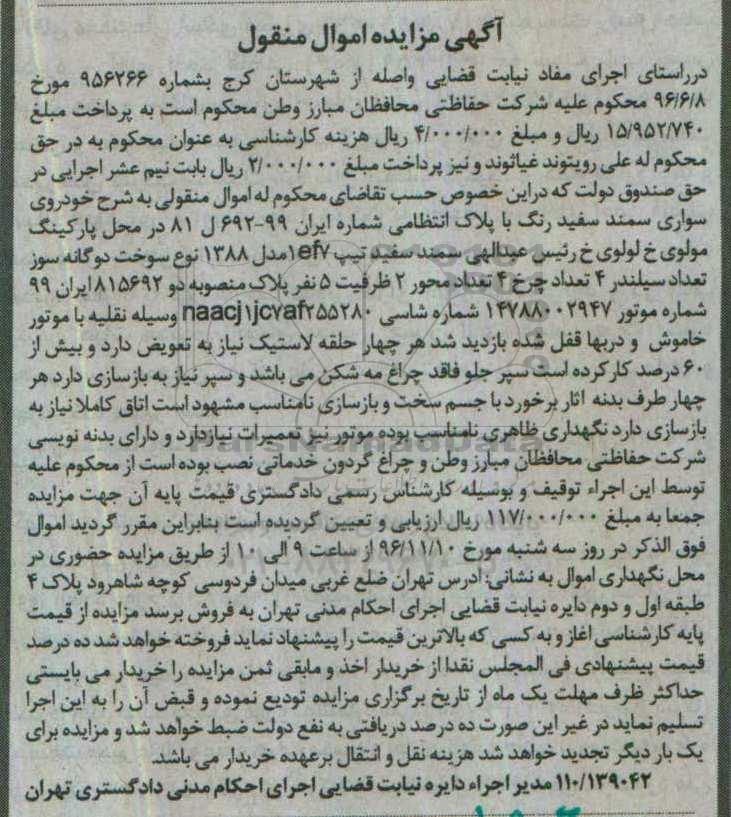 آگهی مزایده اموال منقول
درراستای اجرای مفاد نیابت قضایی واصله از شهرستان کرج بشماره ۹۵۶۲۶۶ مورخ
۹۶/۶/۸ محکوم علیه شرکت حفاظتی محافظان مبارز وطن محکوم است به پرداخت مبلغ
۱۵/۹۵۲/۷۴۰ ریال و مبلغ ۴/۰۰۰/۰۰۰ ریال هزینه کارشناسی به عنوان محکوم به در حق
محکوم له علی رویتوند غیاثوند و نیز پرداخت مبلغ ۲/۰۰۰/۰۰۰ ریال بابت نیم عشر اجرایی در
حق صندوق دولت که دراین خصوص حسب تقاضای محکوم له اموال منقولی به شرح خودروی
سواری سمند سفید رنگ با پلاک انتظامی شماره ایران ۹۹-۶۹۲ ل ۸۱ در محل پارکینگ
مولوی خ لولوی خ رئیس عبدالهی سمند سفید تیپ ef۷ا مدل ۱۳۸۸ نوع سوخت دوگانه سوز
تعداد سیلندر ۴ تعداد چرخ ۴ تعداد محور ۲ ظرفیت ۵ نفر پلاک منصوبه دو ۸۱۵۶۹۲ ایران ۹۹
شماره موتور ۱۴۷۸۸۰۰۲۹۴۷ شماره شاسی naacj۱jc۷af۲۵۵۲۸۰ وسیله نقلیه با موتور
خاموش و دربها قفل شده بازدید شد هر چهار حلقه لاستیک نیاز به تعویض دارد و بیش از
۶۰ درصد کارکرده است سپر جلو فاقد چراغ مه شکن می باشد و سپر نیاز به بازسازی دارد هر
چهار طرف بدنه اثار برخورد با جسم سخت و بازسازی نامناسب مشهود است اتاق کاملا نیاز به
بازسازی دارد نگهداری ظاهری نامناسب بوده موتور نیز تعمیرات نیازدارد و دارای بدنه نویسی
شرکت حفاظتی محافظان مبارز وطن و چراغ گردون خدماتی نصب بوده است از محکوم علیه
توسط این اجراء توقیف و بوسیله کارشناس رسمی دادگستری قیمت پایه آن جهت مزایده
جمعا به مبلغ ۱۱۷/۰۰۰/۰۰۰ ریال ارزیابی و تعیین گردیده است بنابراین مقرر گردید اموال
فوق الذکر در روز سه شنبه مورخ ۹۶/۱۱/۱۰ از ساعت ۹ الی ۱۰ از طریق مزایده حضوری در
محل نگهداری اموال به نشانی: ادرس تهران ضلع غربی میدان فردوسی کوچه شاهرود پلاک ۴
طبقه اول و دوم دایره نیابت قضایی اجرای احکام مدنی تهران به فروش برسد مزایده از قیمت
پایه کارشناسی اغاز و به کسی که بالاترین قیمت را پیشنهاد نماید فروخته خواهد شد ده درصد
قیمت پیشنهادی فی المجلس نقدا از خریدار اخذ و مابقی ثمن مزایده را خریدار می بایستی
حداکثر ظرف مهلت یک ماه از تاریخ برگزاری مزایده تودیع نموده و قبض آن را به این اجرا
تسلیم نماید در غیر این صورت ده درصد دریافتی به نفع دولت ضبط خواهد شد و مزایده برای
یک بار دیگر تجدید خواهد شد هزینه نقل و انتقال برعهده خریدار می باشد.
۱۱۰/۱۳۹۰۴۲ مدیر اجراء دایره نیابت قضایی اجرای احکام مدنی دادگستری تهران